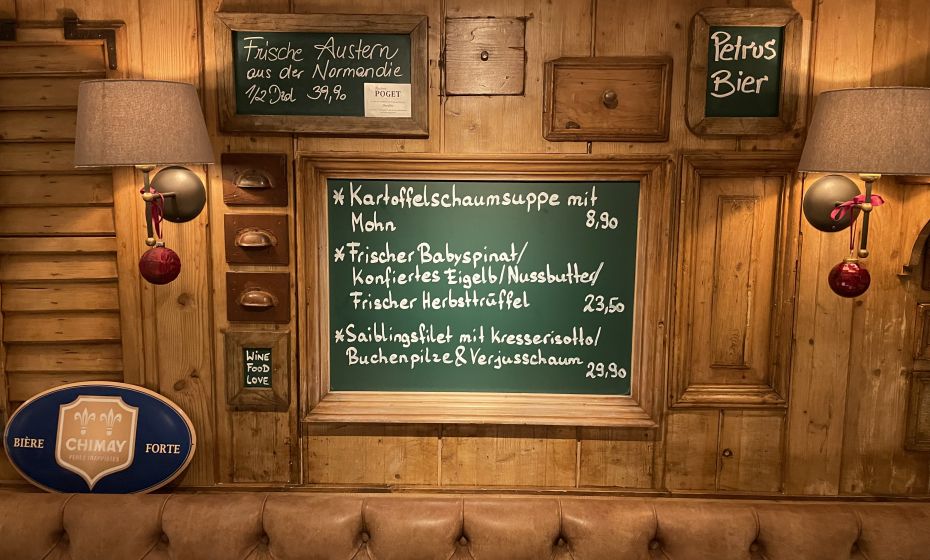 Frische Austern
aus der Normandie
1/2 Dzd 39,90
POGET
Petrus
Bier
* Kartoffelschaumsuppe mit
Mohn 8,90
* Frischer Babyspinat/
Konfiertes Eigelb/Nussbutter/
Frischer Herbsttrüffel 23,50
* Saiblingsfilet mit Kresserisotto/
Buchenpilze & Verjusschaum
29,90
WINE
FOOD
LOVE
BIÈRE CHIMAY FORTE
PÈRES TRAPPISTES